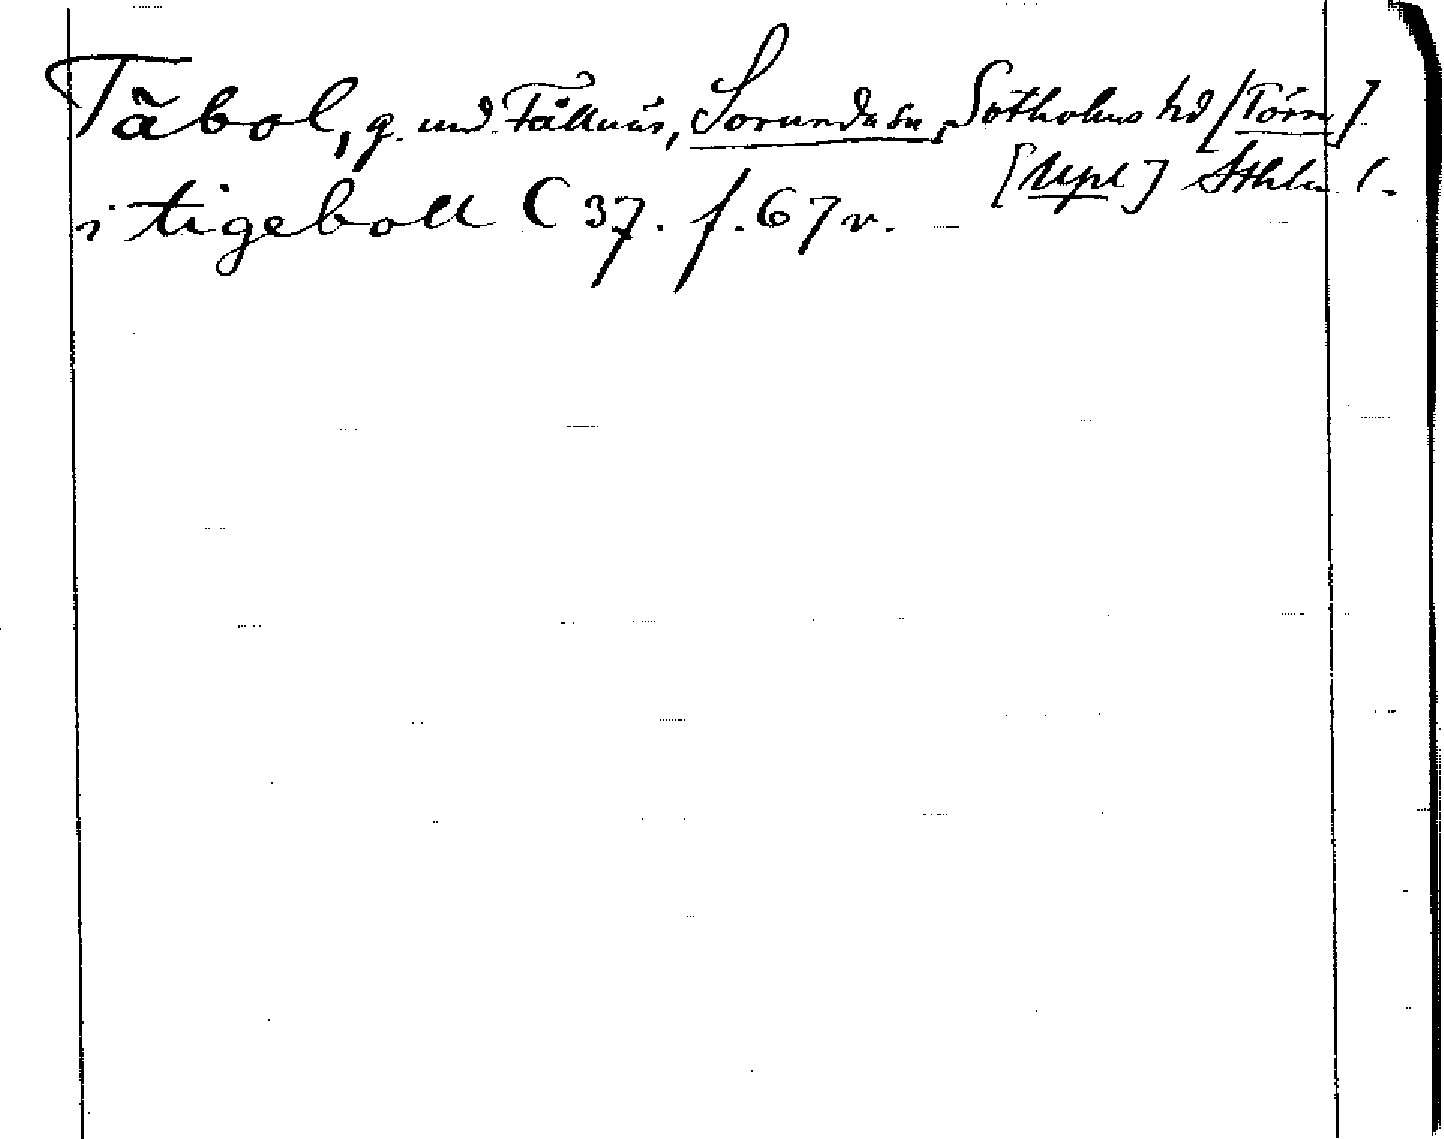 Täbol, g. und. Fållnäs, Sorunda sn, Sotholms hd [Törn]
[Upl] Sthlm l.
i tigeboll C 37. f. 67 v.